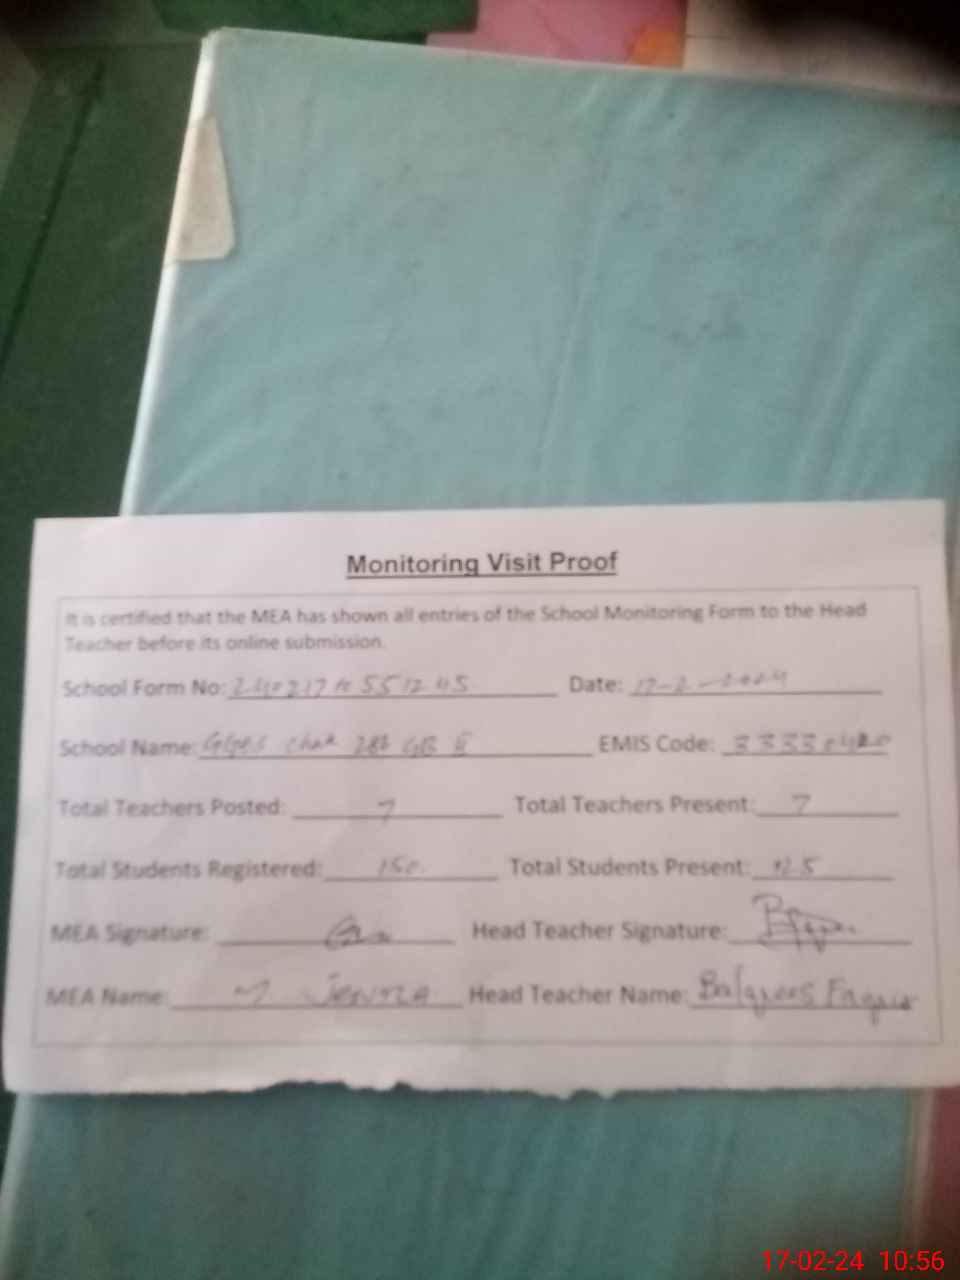 Monitoring Visit Proof
It is certified that the MEA has shown all entries of the School Monitoring Form to the Head
Teacher before its online submission.
School Form No: Date: 17-2-2024
School Name: GGPS Chak GB II EMIS Code:
Total Teachers Posted: 7 Total Teachers Present: 7
Total Students Registered: 150 Total Students Present: 125
MEA Signature: Head Teacher Signature:
MEA Name: Head Teacher Name:
17-02-24 10:56